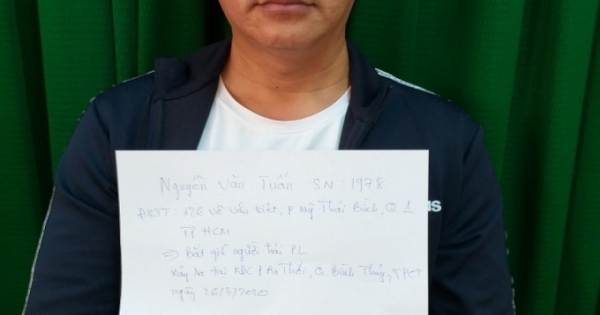 Nguyễn Văn Tuấn SN: 1978
ĐKTT: 126 Võ Văn Kiệt, P Ng Thái Bình, Q 1
TP HCM
=> Bắt giữ người trái PL
xảy ra tại KDC P An Thới, Q. Bình Thủy, TPCT
ngày 26/3/2020